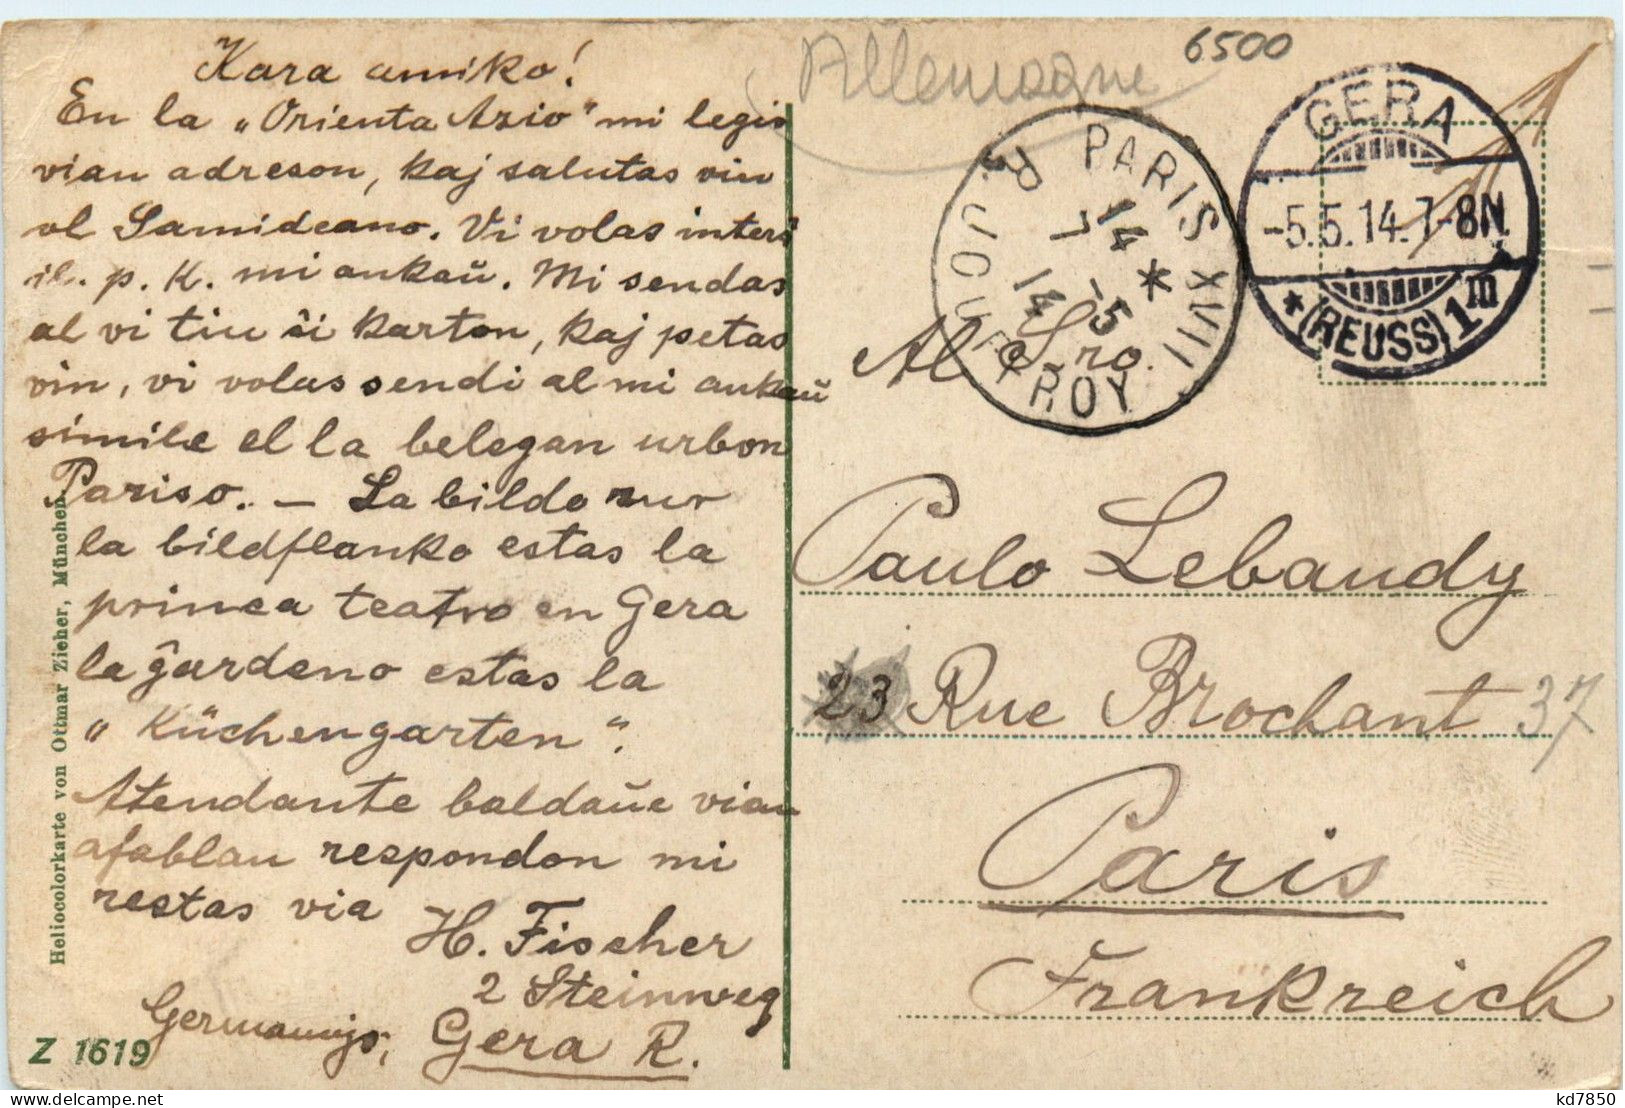 Kara amiko!
En la „Orienta Azio“ mi legis
vian adreson, kaj salutas vin
al Samideano. Vi volas interŝ
il. p. K. mi ankaŭ. Mi sendas
al vi tiu ĉi karton, kaj petas
vin, vi volas sendi al mi ankaŭ
simile el la belegan urbon
Pariso. — La bildo sur
la bildflanko estas la
princa teatro en Gera
la ĝardeno estas la
„Küchengarten“.
Atendante baldaŭe vian
afablan respondon mi
restas via
H. Fischer
2 Steinweg
Germanujo, Gera R.
Heliocolorkarte von Ottmar Zieher, München.
Z 1619
Allemagne
6500
PARIS XVII
14 * 7 -5 14
R. JOUFFROY
GERA
-5.5.14.7-8N.
*(REUSS)1m
Al Sro.
Paulo Lebaudy
23 Rue Brochant 37
Paris
Frankreich
kd7850